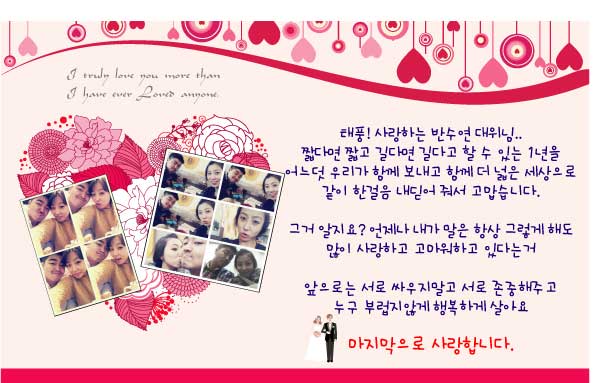 I truly love you more than
I have ever Loved anyone.
태풍! 사랑하는 반수연 대위님..
짧다면 짧고 길다면 길다고 할 수 있는 1년을
어느던 우리가 함께 보내고 함께 더 넓은 세상으로
같이 한걸음 내딛어 줘서 고맙습니다.
그거 알지요? 언제나 내가 말은 항상 그렇게 해도
많이 사랑하고 고마워하고 있다는거
앞으로는 서로 싸우지말고 서로 존중해주고
누구 부럽지않게 행복하게 살아요
마지막으로 사랑합니다.